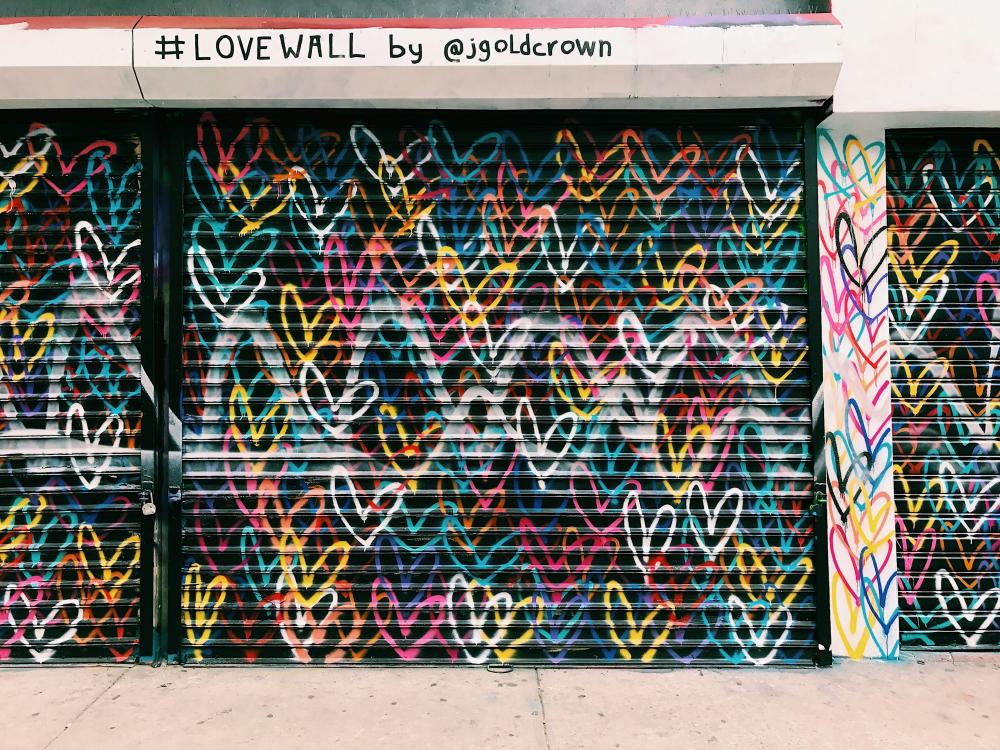 #LOVEWALL by @jgoldcrown